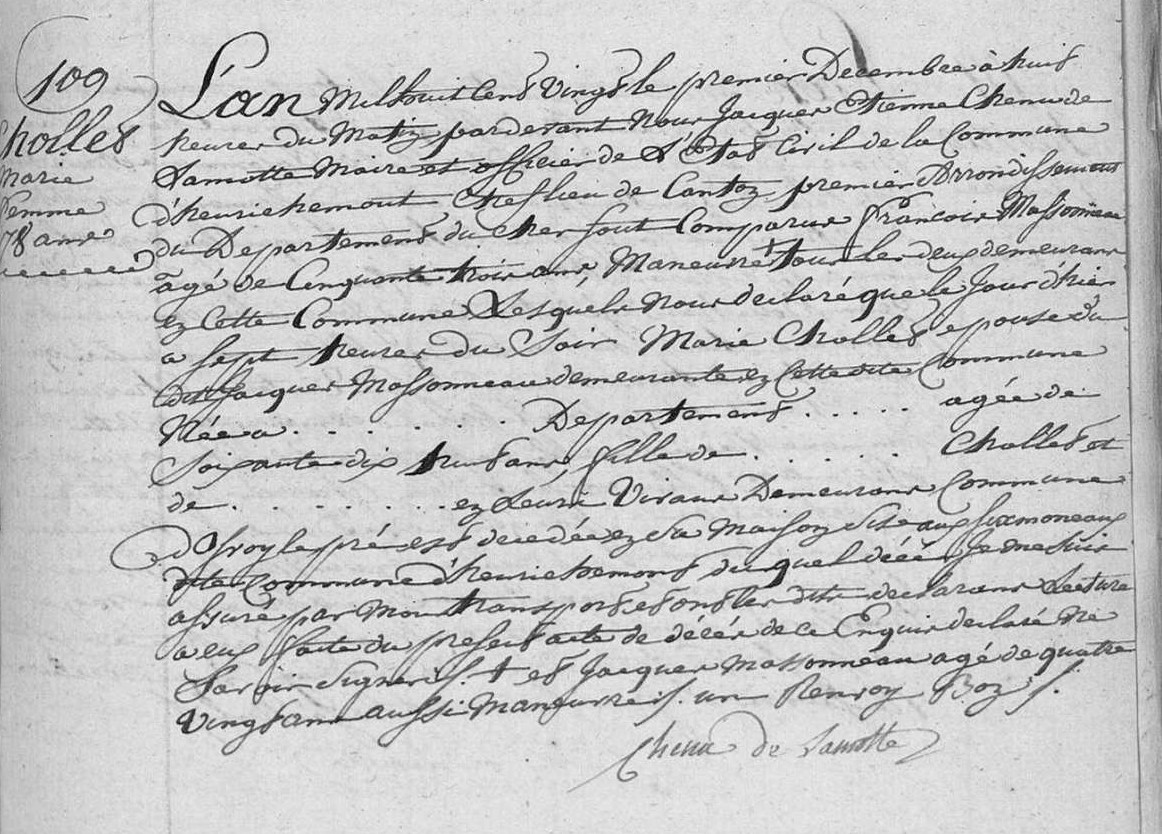 109
Chollet
Marie
Femme
78 ans
L'an Mil huit Cent Vingt le premier Decembre à huit
heures du Matin pardevant Nous Jacques Etienne Chenu de
Lamotte Maire et officier de L'Etat Civil de la Commune
d'henrichemont Cheflieu de Canton premier Arrondissement
du Departement du Cher sont Comparus François Massonneau
agé de Cinquante trois ans Maneuvre + tous les deux demeurans
en Cette Commune Lesquels Nous declaré que le Jour d'hier
a sept heures du Soir Marie Chollet epouse du
dit Jacques Massonneau demeurante en Cette dite Commune
Née a . . . . . . . Departement . . . . . agée de
Soixante dix huit ans fille de . . . . . . Chollet et
de . . . . . . . . en Leurs Vivans Demeurans Commune
d'Osroy le pré est decedée en sa Maison Site aux Six moneaux
dite Commune d'henrichemont duquel décés Je me suis
assuré par Mon transport et ont les dits declarans Lecture
a eux faite du present acte de décés de ce Enquis declaré Ne
Savoir Signer ./. + et Jacques Massonneau agé de quatre
Vingt ans aussi Maneuvre ./. un Renvoy Bon ./.
Chenu de Lamotte